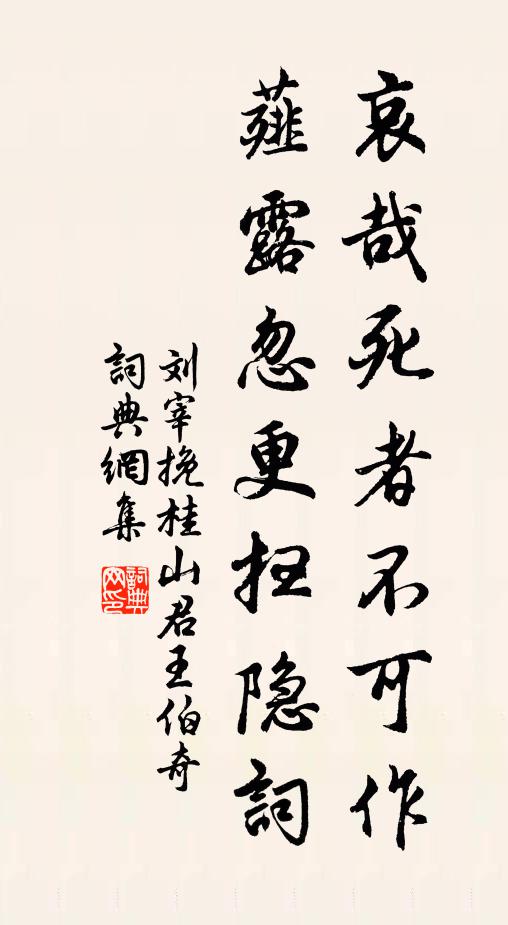 哀哉死者不可作
薤露忽更抂隐詞
刘宰挽桂山君王伯奇
詞典網集
詞典網印